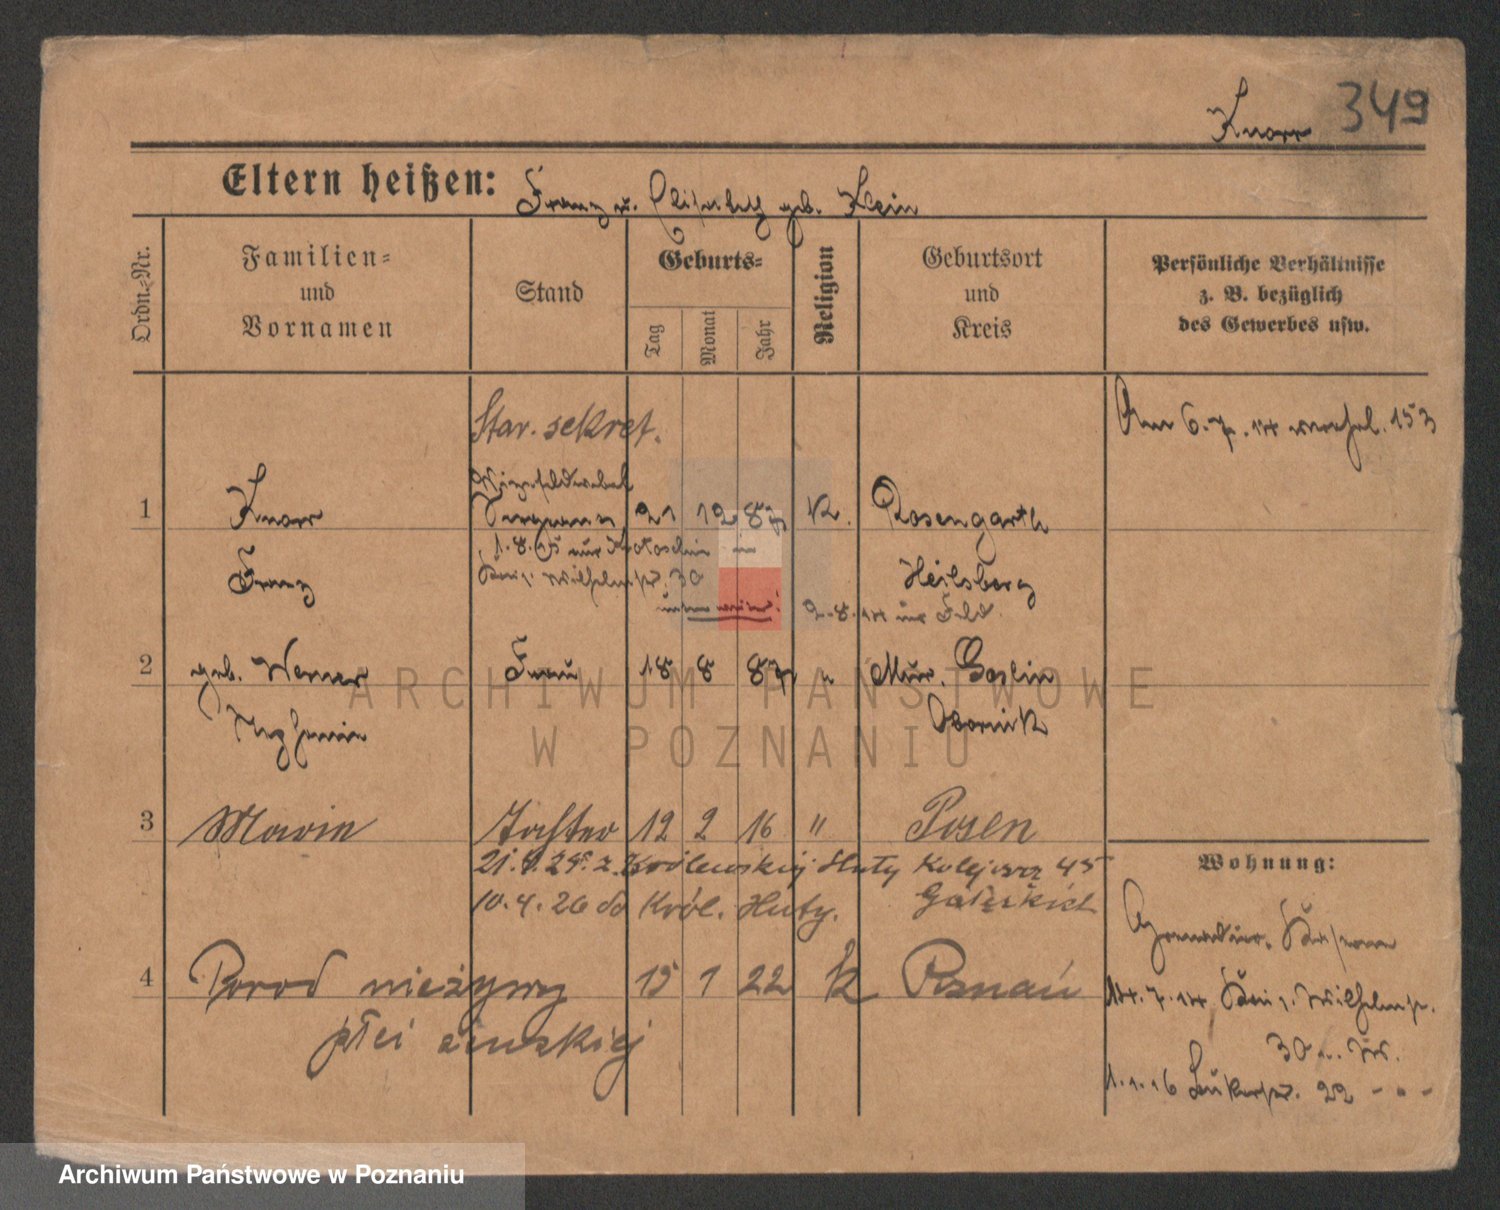 349
Knorr
Eltern heißen: Franz u. Elisabeth geb. Klein
Ordn.-Nr.
Familien- und Vornamen
Stand
Geburts-
Tag
Monat
Jahr
Religion
Geburtsort und Kreis
Persönliche Verhältnisse
z. B. bezüglich
des Gewerbes usw.
Star. sekret.
Am 6.7.14 verehel. 153
Vizefeldwebel
1 Knorr Sergeant 21 12 87 K. Rosengarth
1.8.15 nur Krotoschin
Franz Wilhelmstr. 30 Heilsberg
2.8.14 ins Feld
2 geb. Werner Frau 18 8 87 " Mur. Goslin
Obornik
3 Marie Tochter 12 2 16 " Posen
21. 25. z Królewskiej Huty Kolejowa 45
10.4.26 do Król. Huty.
Wohnung:
4 Porod nieżywy 15 1 22 k Poznań
płci żeńskiej
14.7.14 Wilhelmstr.
30
1.1.16 22 - " -
ARCHIWUM PAŃSTWOWE
W POZNANIU
Archiwum Państwowe w Poznaniu